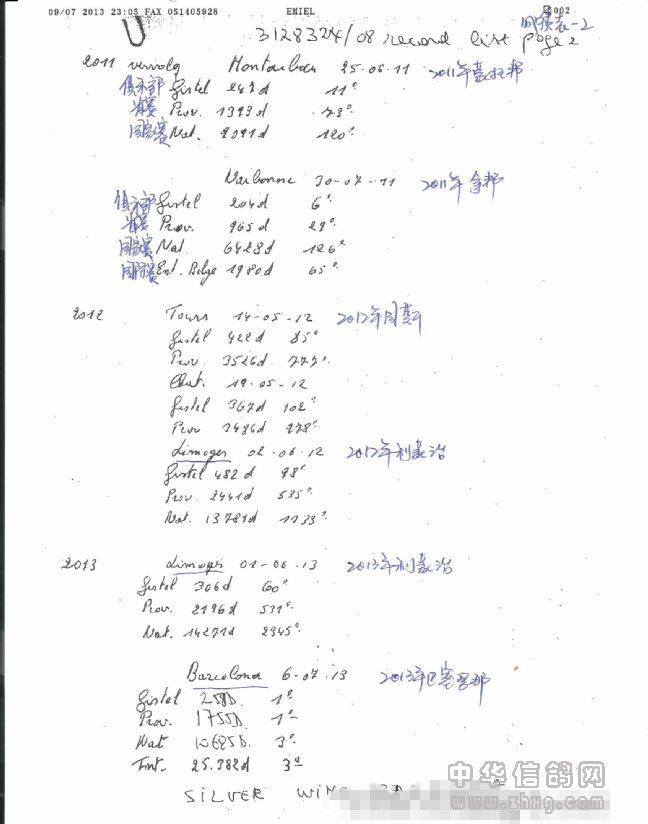 09/07 2013 23:05 FAX 051405928 EMIEL 002
U 3128324/08 record list page 2
2011 vervolg Montauban 25-06-11 2011年蒙托邦
俱乐部 Gistel 242d 11°
省赛 Prov. 1393d 73°
国家赛 Nat. 9091d 120°
Narbonne 30-07-11 2011年拿邦
俱乐部 Gistel 204d 6°
省赛 Prov. 965d 29°
国家赛 Nat. 6428d 126°
国际赛 Ent. Belge 1980d 65°
2012 Tours 14-05-12 2012年
Gistel 422d 85°
Prov. 3526d 777°
Chat. 19-05-12
Gistel 367d 102°
Prov 3486d 278°
Limoges 02-06-12 2012年利蒙治
Gistel 482d 98°
Prov. 2441d 535°
Nat. 13781d 1133°
2013 Limoges 01-06-13 2013年利蒙治
Gistel 306d 60°
Prov. 2196d 531°
Nat. 14271d 2345°
Barcelona 6-07-13 2013年巴塞罗那
Gistel 258D. 1°
Prov. 1755D. 1°
Nat 10685D. 3°
Int. 25.382d 3°
SILVER WING
中华信鸽网
www.zhxg.com